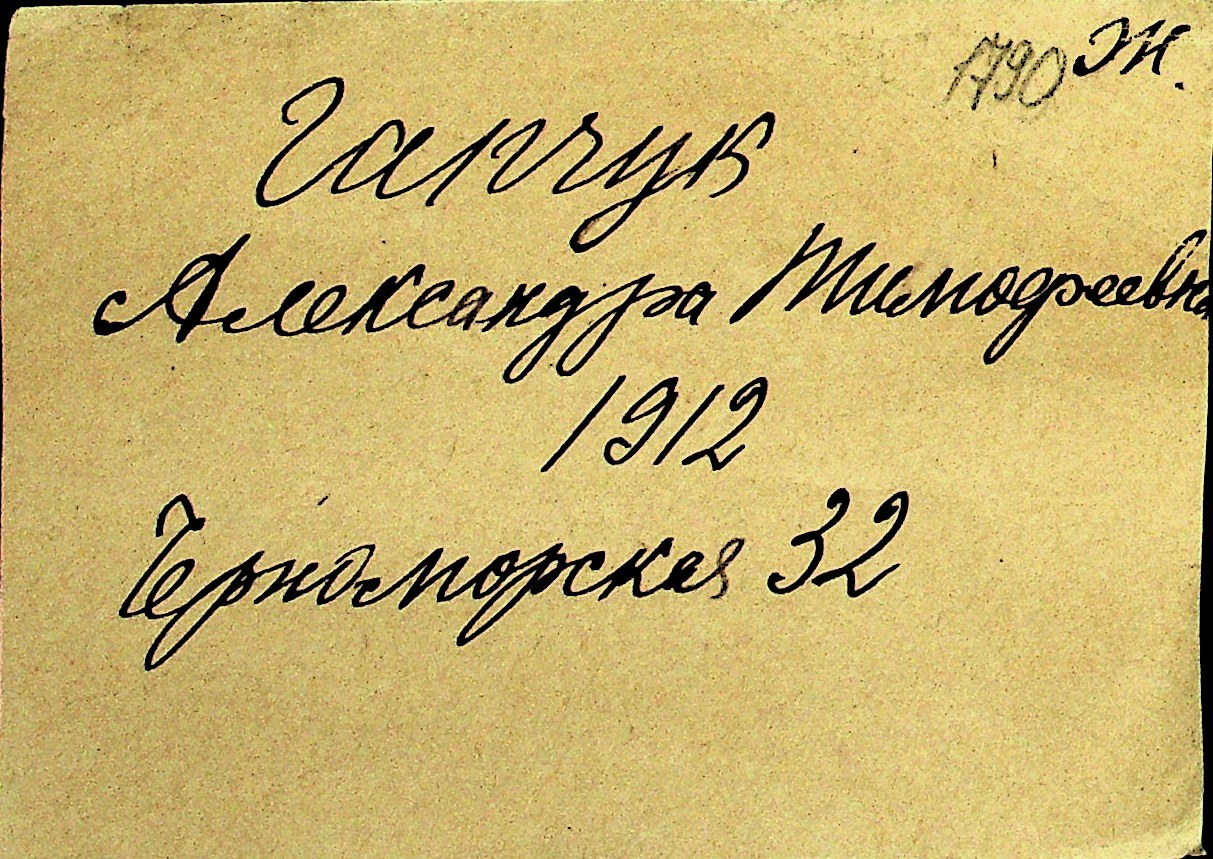 1790 Ж.
Гапчук
Александра Тимофеевна
1912
Черноморская 32